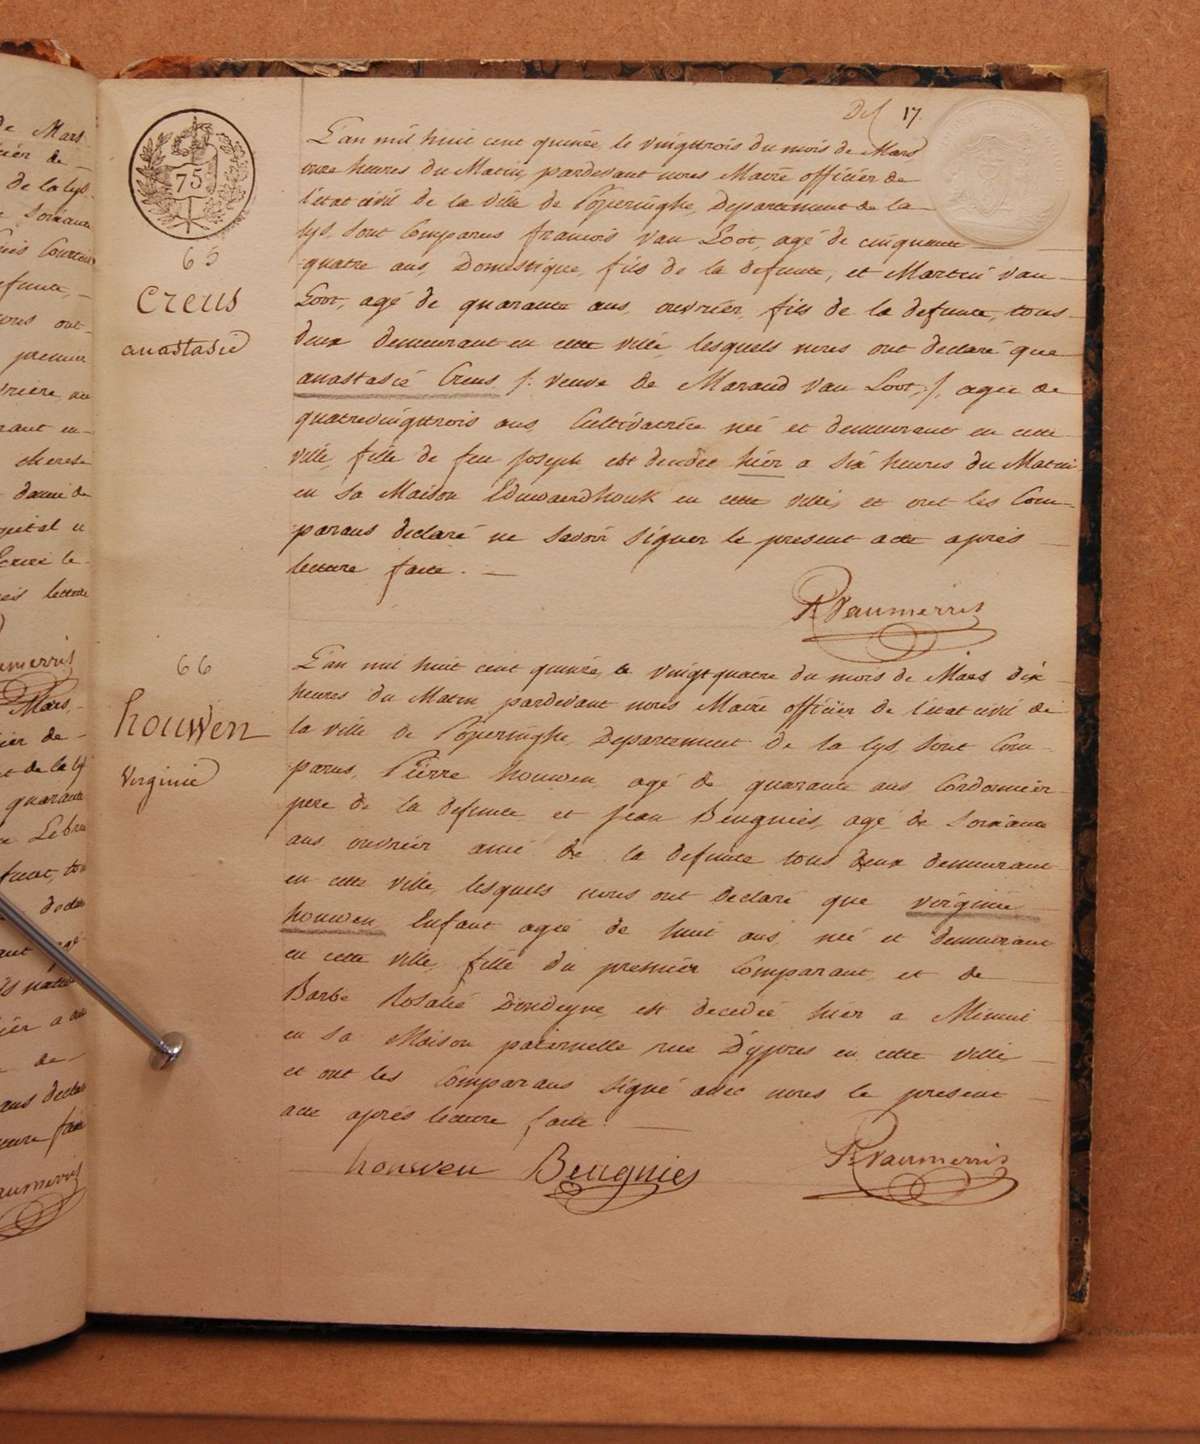 Del 17
75
65
Creus
anastasie
L'an mil huit cent quinze le vingttrois du mois de Mars
onze heures du Matin pardevant nous Maire officier de
l'etat civil de la ville de Poperinghe, Departement de la
lys, sont Comparus francois van Loot, agé de cinquante
quatre ans, Domestique, fils de la defunte, et Martin van
Loot, agé de quarante ans, ouvrier, fils de la defunte, tous
deux demeurant en cette ville, lesquels nous ont declaré que
anastasie Creus /: veuve de Maraud van Loot,:/ agee de
quatrevingttrois ans Cultivatrice née et demeurant en cette
ville, fille de feu Joseph est decedée hier a six heures du Matin
en sa Maison Eduwaerdhouk en cette ville, et ont les Com-
parans declaré ne savoir signer le present acte après
lecture faite.
P. Vanmerris
66
houwen
Virginie
L'an mil huit cent quinze, le vingtquatre du mois de Mars dix
heures du Matin pardevant nous Maire officier de l'etat civil de
la ville de Poperinghe, Departement de la lys, sont Com-
parus, Pierre houwen, agé de quarante ans, Cordonnier
pere de la defunte, et Jean Beugnies, agé de soixante
ans ouvrier amie de la defunte tous deux demeurant
en cette ville, lesquels nous ont declaré que virginie
houwen Enfant agée de huit ans, née et demeurant
en cette ville, fille du premier Comparant, et de
Barbe Rosalie Dondeyne, est decedée hier a Minuit
en sa Maison paternelle rue D'ypres en cette ville
et ont les Comparans signé avec nous le present
acte aprés lecture faite.
houwen Beugnies P. Vanmerris